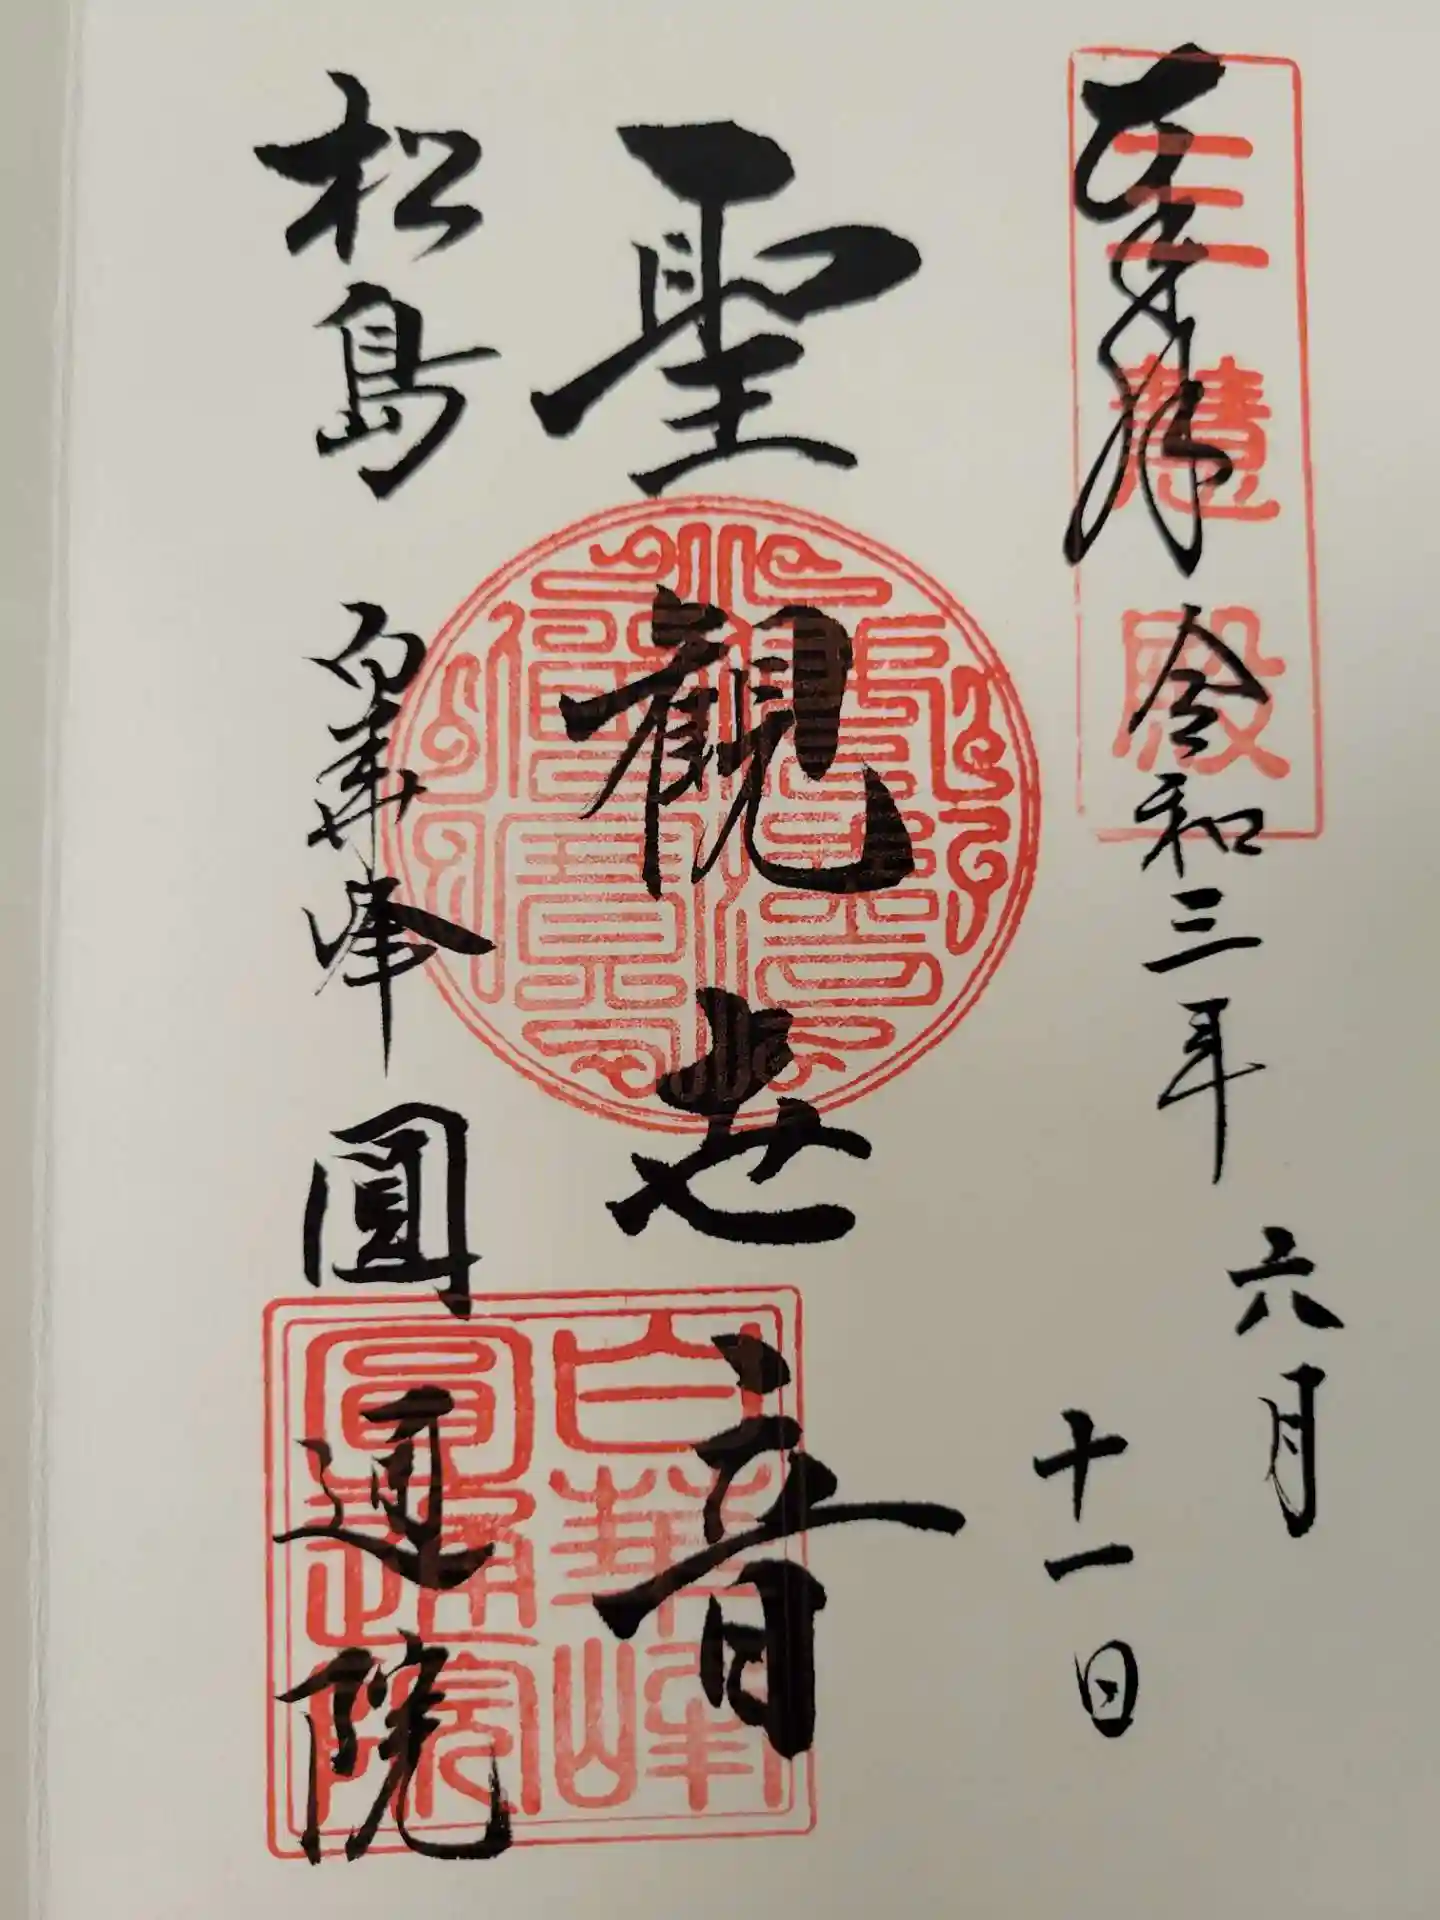 奉拝 令和三年 六月
十一日
三慧殿
聖観世音
松島 白華峰 圓通院
白華峰
圓通院